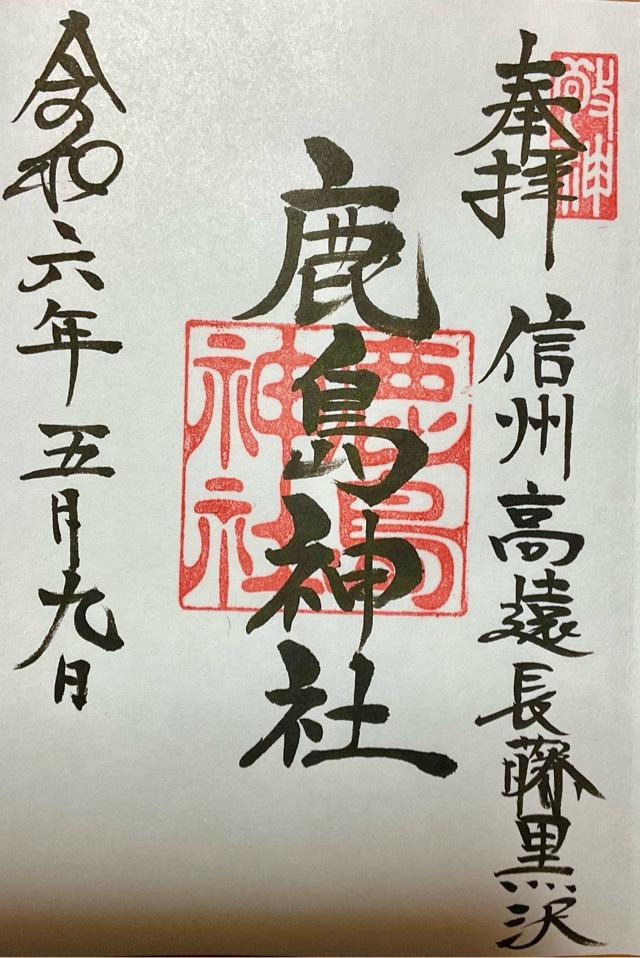 敬神
奉拝 信州高遠長藤黒沢
鹿島神社
鹿島
神社
令和六年五月九日